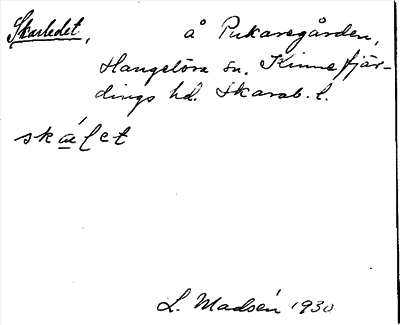 Skarledet, å Pukaregården,
Hangelösa sn. Kinnefjär-
dings hd. Skarab. l.
skálet
L. Madsén 1930